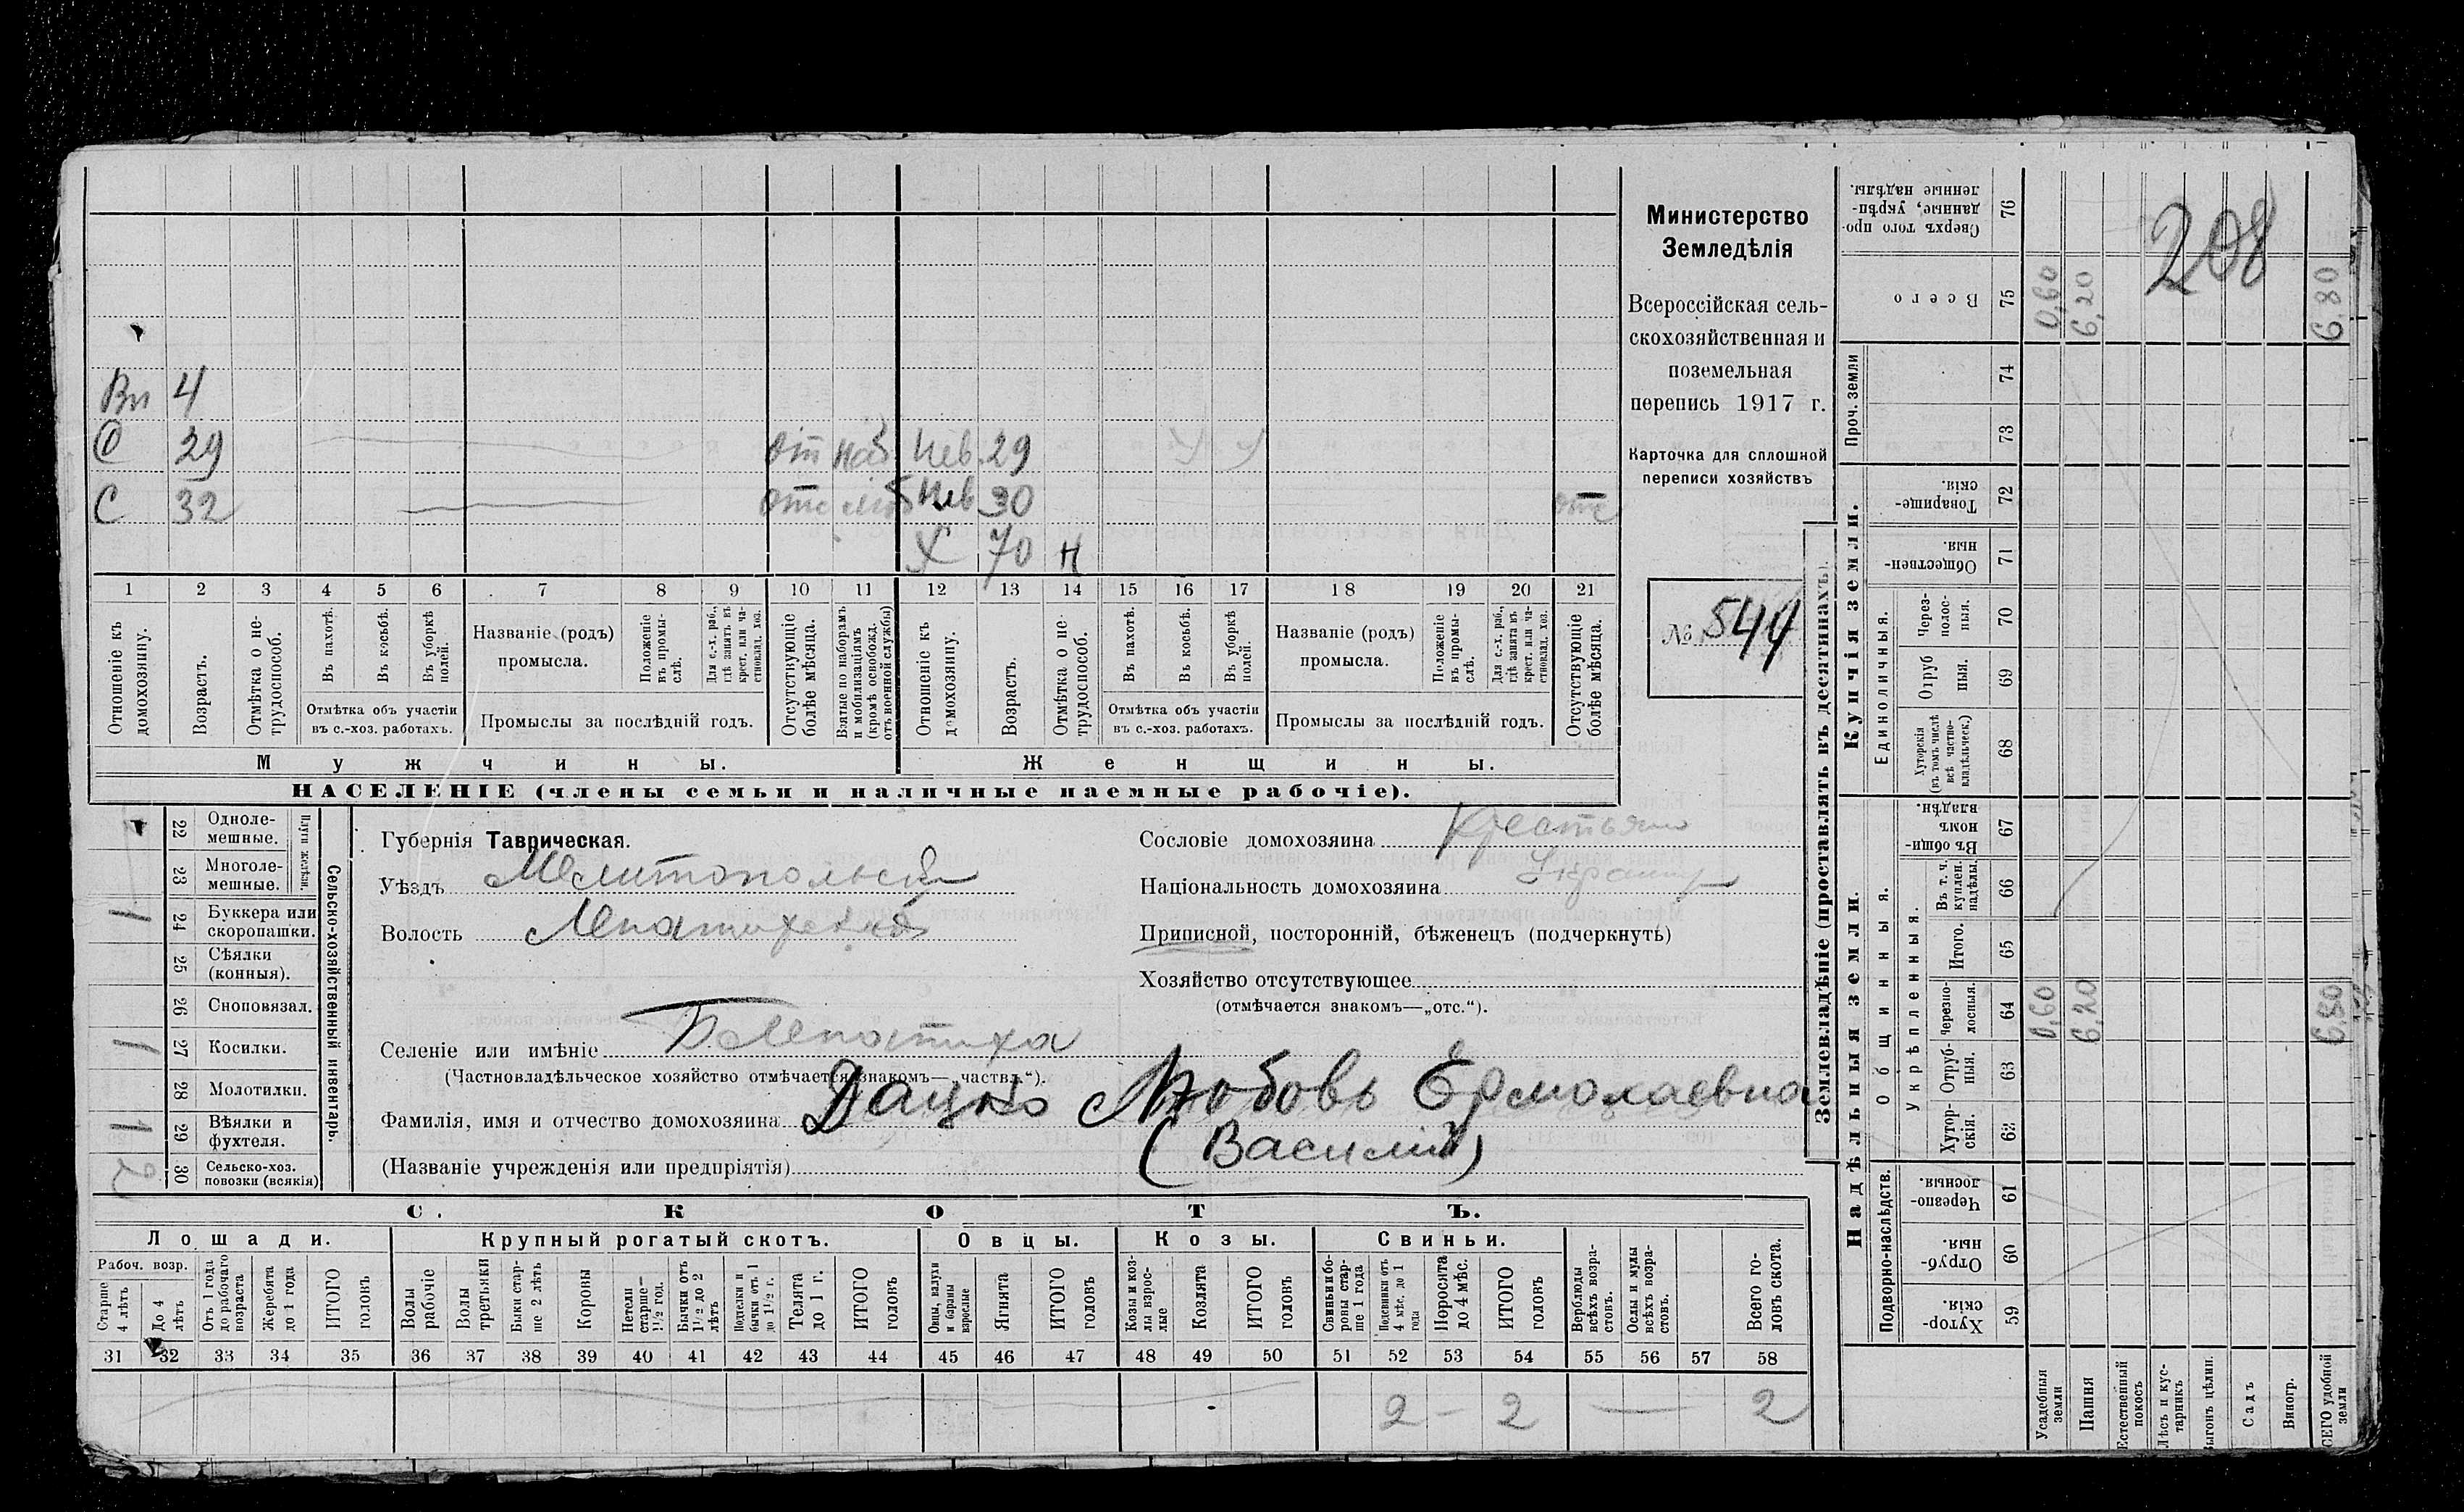 Министерство
Земледѣлія
Всероссійская сель-
скохозяйственная и
поземельная
перепись 1917 г.
Карточка для сплошной
переписи хозяйствъ
№ 544
208
Вн 4
С 29 От Наб Нев 29
С 32 Отс Моб Нев 30 Отс
Х 70 Н
1 2 3 4 5 6 7 8 9 10 11 12 13 14 15 16 17 18 19 20 21
Отношеніе къ домохозяину.
Возрастъ.
Отмѣтка о не-трудоспособ.
Въ пахотѣ.
Въ косьбѣ.
Въ уборкѣ полей.
Отмѣтка объ участіи
въ с.-хоз. работахъ.
Названіе (родъ)
промысла.
Положеніе въ промы-слѣ.
Для с.-х. раб., гдѣ занятъ въ крест. или ча-стновлад. хоз.
Промыслы за послѣдній годъ.
Отсутствующіе болѣе мѣсяца.
Взятые по наборамъ и мобилизаціямъ (кромѣ освобожд. отъ военной службы)
Отношеніе къ домохозяину.
Возрастъ.
Отмѣтка о не-трудоспособ.
Въ пахотѣ.
Въ косьбѣ.
Въ уборкѣ полей.
Отмѣтка объ участіи
въ с.-хоз. работахъ.
Названіе (родъ)
промысла.
Положеніе въ промы-слѣ.
Для с.-х. раб., гдѣ занята въ крест. или ча-стновлад. хоз.
Промыслы за послѣдній годъ.
Отсутствующіе болѣе мѣсяца.
Мужчины. Женщины.
НАСЕЛЕНІЕ (члены семьи и наличные наемные рабочіе).
Сельско-хозяйственный инвентарь.
Плуги желѣзн.
22 Однолемешные.
23 Многолемешные.
1 24 Буккера или скоропашки.
25 Сѣялки (конныя).
26 Сноповязал.
1 27 Косилки.
28 Молотилки.
1 29 Вѣялки и фухтеля.
2 30 Сельско-хоз. повозки (всякія)
Губернія Таврическая.
Уѣздъ Мелитопольскій
Волость Лепатихская
Селеніе или имѣніе Б Лепатиха
(Частновладѣльческое хозяйство отмѣчается знакомъ—„частвл.“).
Фамилія, имя и отчество домохозяина Дацко Любовь Ермолаевна
(Василий)
(Названіе учрежденія или предпріятія)
Сословіе домохозяина Крестьян
Національность домохозяина Украин
Приписной, посторонній, бѣженецъ (подчеркнуть)
Хозяйство отсутствующее
(отмѣчается знакомъ—„отс.“).
СКОТЪ.
Лошади. Крупный рогатый скотъ. Овцы. Козы. Свиньи.
Рабоч. возр.
Старше 4 лѣтъ
До 4 лѣтъ
Отъ 1 года до рабочаго возраста
Жеребята до 1 года
ИТОГО головъ
Волы рабочіе
Волы третьяки
Быки стар-ше 2 лѣтъ
Коровы
Нетели старше 1½ год.
Бычки отъ 1½ до 2 лѣтъ
Подтелки и бычки отъ 1 до 1½ г.
Телята до 1 г.
ИТОГО головъ
Овцы, валухи и бараны взрослые
Ягнята
ИТОГО головъ
Козы и коз-лы взрос-лые
Козлята
ИТОГО головъ
Свиньи и бо-ровы стар-ше 1 года
Подсвинки отъ 4 мѣс. до 1 года
Поросята до 4 мѣс.
ИТОГО головъ
Верблюды всѣхъ возра-стовъ.
Ослы и мулы всѣхъ возра-стовъ.
Всего го-ловъ скота.
31 32 33 34 35 36 37 38 39 40 41 42 43 44 45 46 47 48 49 50 51 52 53 54 55 56 57 58
2 – 2 — 2
Землевладѣніе (проставлять въ десятинахъ).
Купчія земли.
Надѣльныя земли.
Сверхъ того про-данные, укрѣп-ленные надѣлы. 76
Всего 75 0,60 6,20 6,80
Проч. земли 74
73
Товарище-скія. 72
Обществен-ныя. 71
Единоличныя.
Через-полос-ныя. 70
Отруб ныя. 69
Хуторскія (въ томъ числѣ всѣ частно-владѣльческ.) 68
Общинныя.
Въ общи-номъ владѣн. 67
Укрѣпленныя.
Въ т. ч. куплен. надѣлы. 66
Итого. 65
Черезпо-лосныя. 64 0,60 6,20 6,80
Отруб-ныя. 63
Хутор-скія. 62
Подворно-наслѣдств.
Черезпо-лосныя. 61
Отруб-ныя. 60
Хутор-скія. 59
Усадебныя земли
Пашня
Естественный покосъ
Лѣсъ и кус-тарникъ
Выгонъ цѣлин.
Садъ
Виногр.
ВСЕГО удобной земли